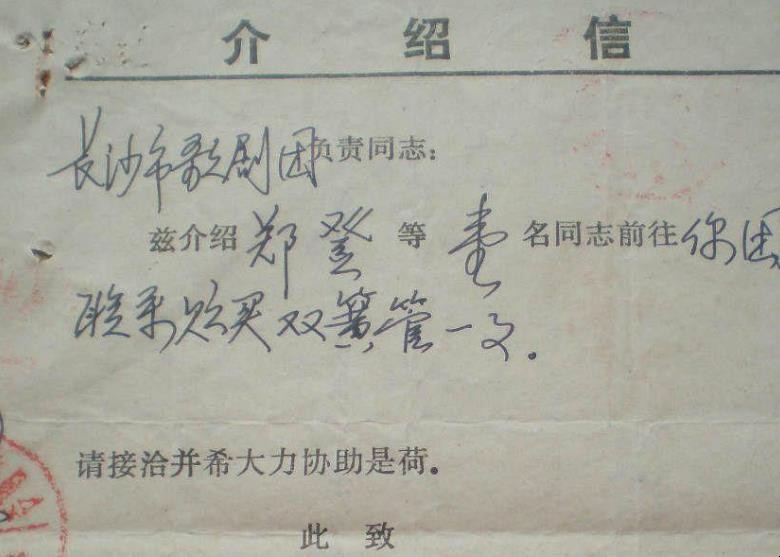 介绍信
长沙市歌剧团负责同志：
兹介绍郑登等壹名同志前往你团
联系购买双簧管一支。
请接洽并希大力协助是荷。
此致